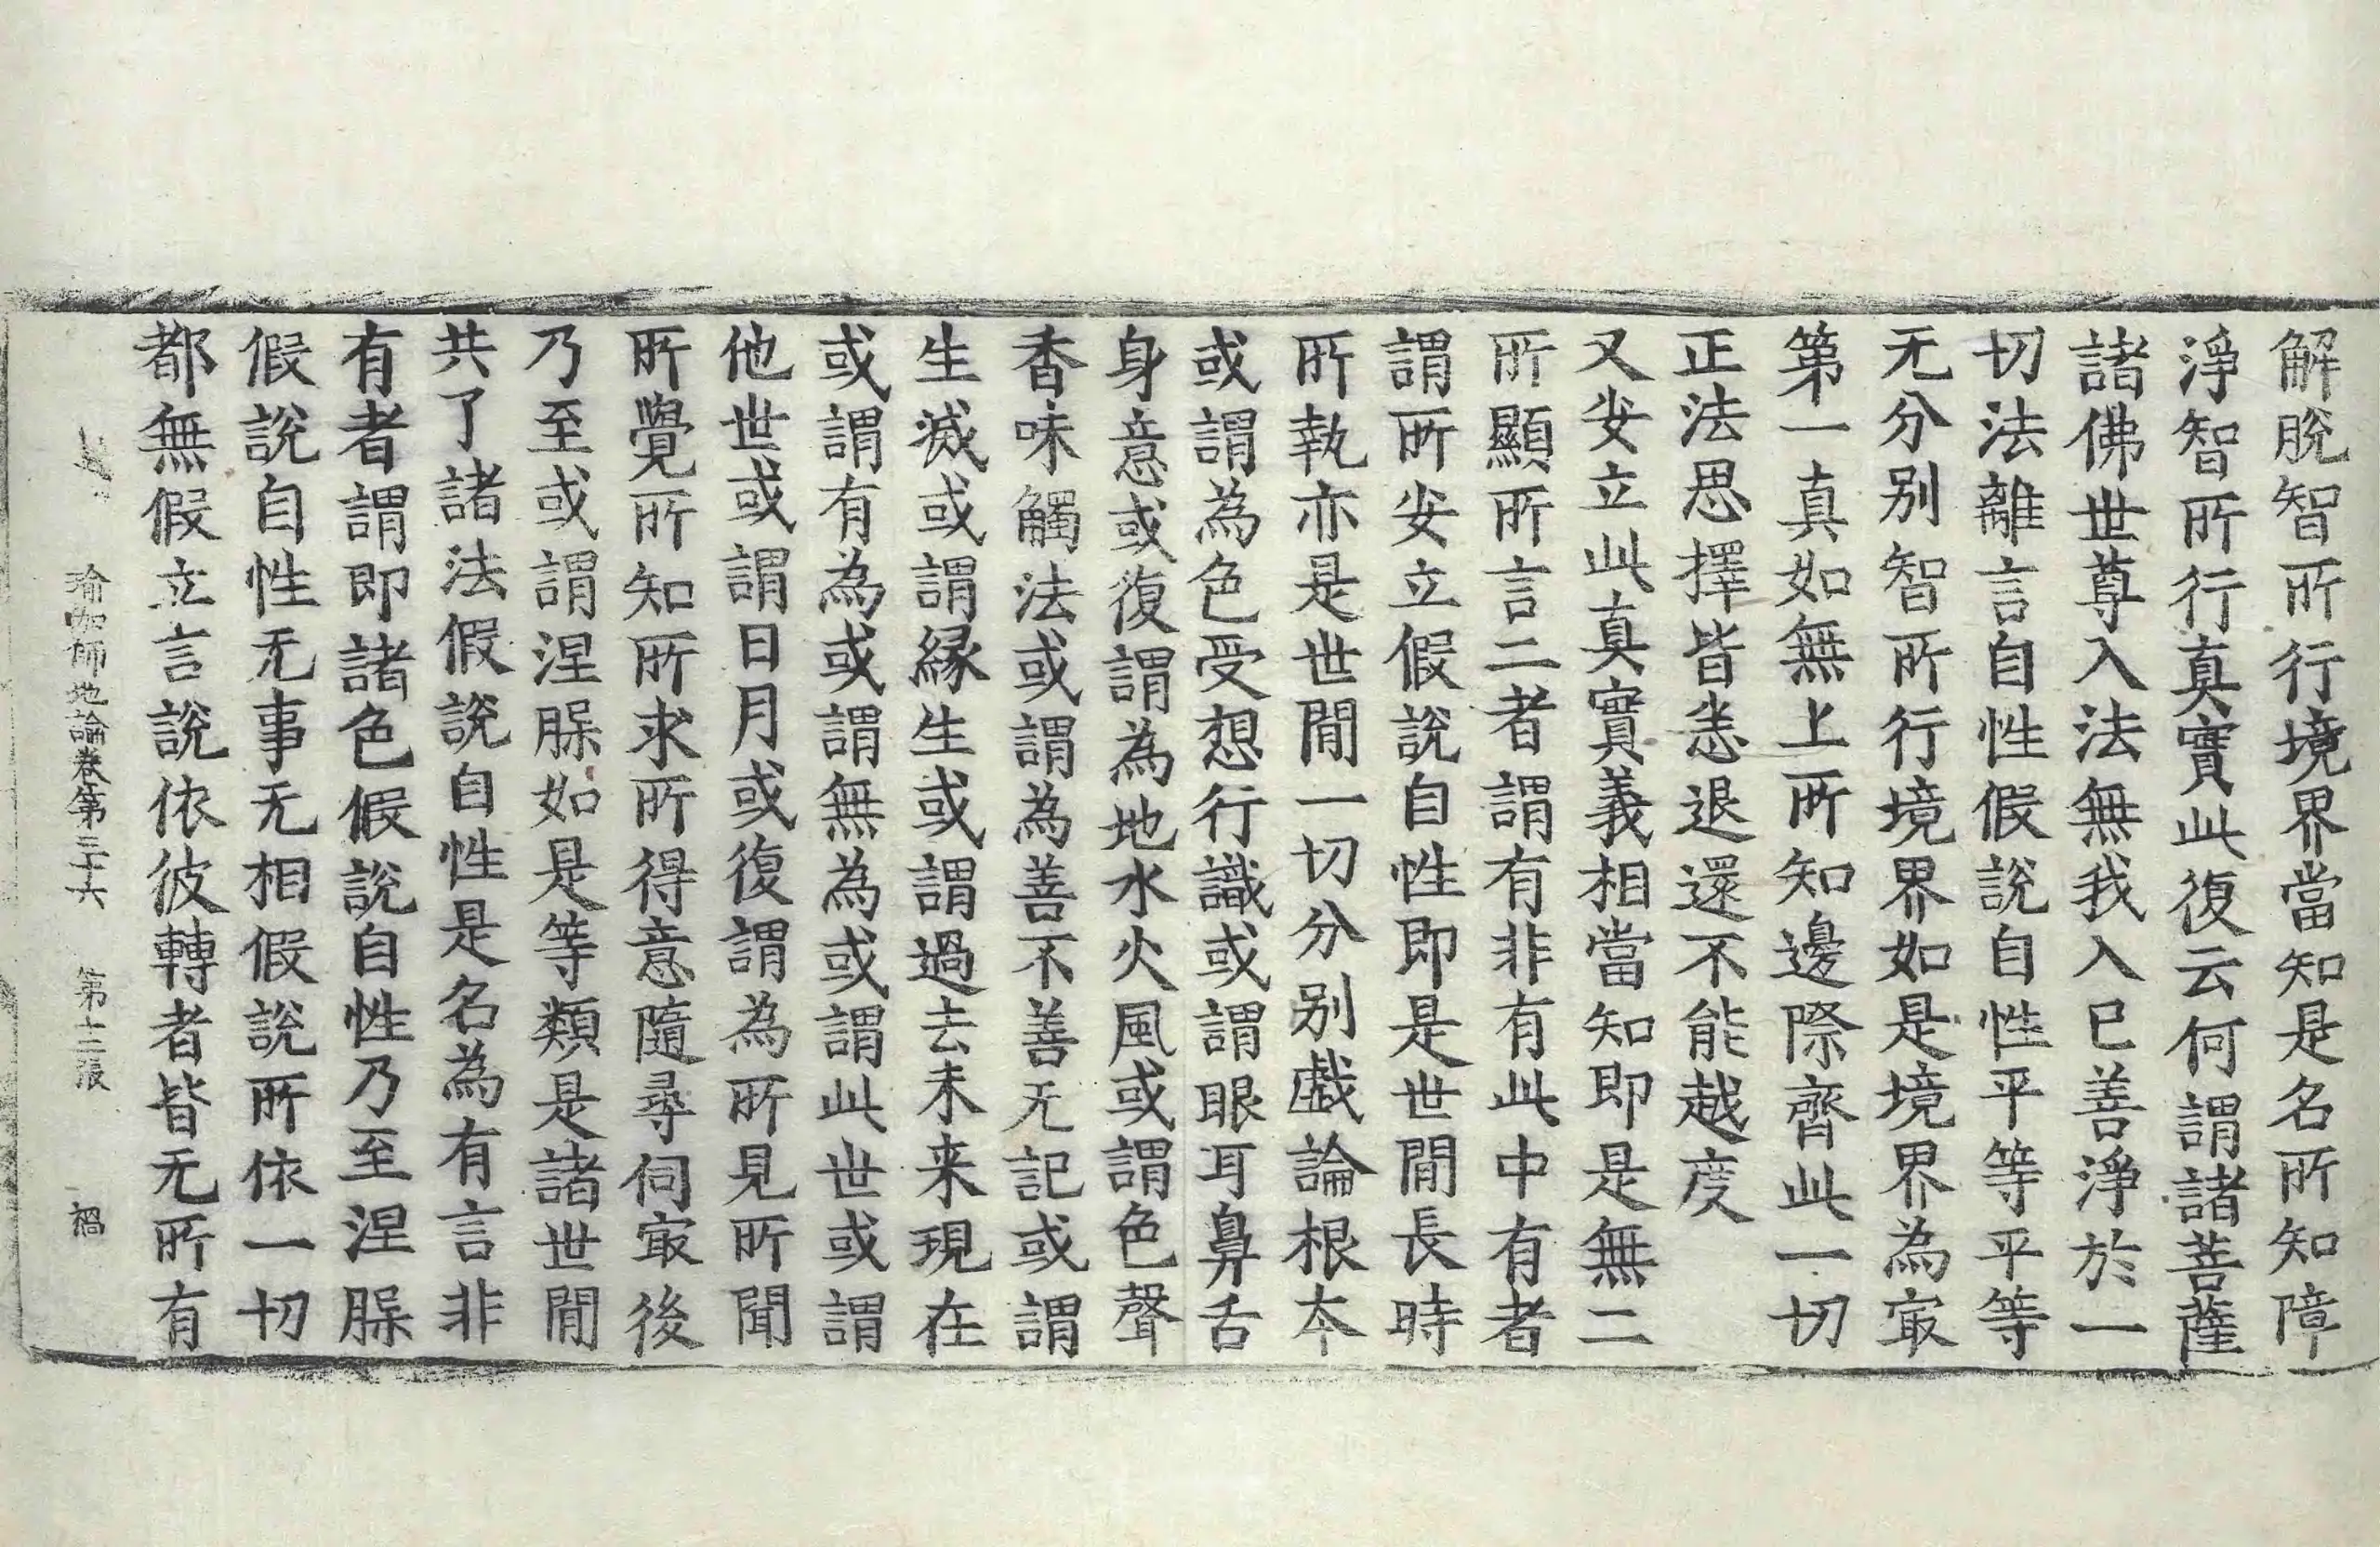 解脫智所行境界當知是名所知障
淨智所行真實此復云何謂諸菩薩
諸佛世尊入法無我入已善淨於一
切法離言自性假說自性平等平等
无分別智所行境界如是境界為㝡
第一真如無上所知邊際齊此一切
正法思擇皆悉退還不能越度
又安立此真實義相當知即是無二
所顯所言二者謂有非有此中有者
謂所安立假說自性即是世閒長時
所執亦是世閒一切分別戱論根夲
或謂為色受想行識或謂眼耳鼻舌
身意或復謂為地水火風或謂色聲
香味觸法或謂為善不善无記或謂
生滅或謂緣生或謂過去未来現在
或謂有為或謂無為或謂此世或謂
他世或謂日月或復謂為所見所聞
所覺所知所求所得意隨尋伺㝡後
乃至或謂涅槃如是等類是諸世閒
共了諸法假說自性是名為有言非
有者謂即諸色假說自性乃至涅槃
假說自性无事无相假說所依一切
都無假立言說依彼轉者皆无所有
瑜伽師地論卷第三十六 第十二張